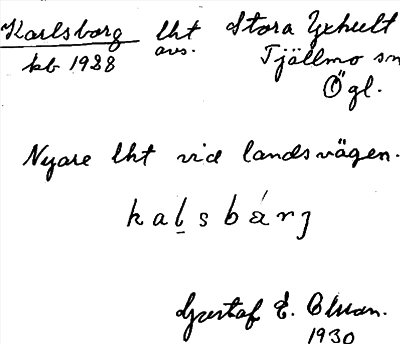 Karlsborg lht Stora Yxhult
kb 1928 avs. Tjällmo sn
Ögl.
Nyare lht vid landsvägen.
kalsbárj
Gustaf E. Olsson.
1930